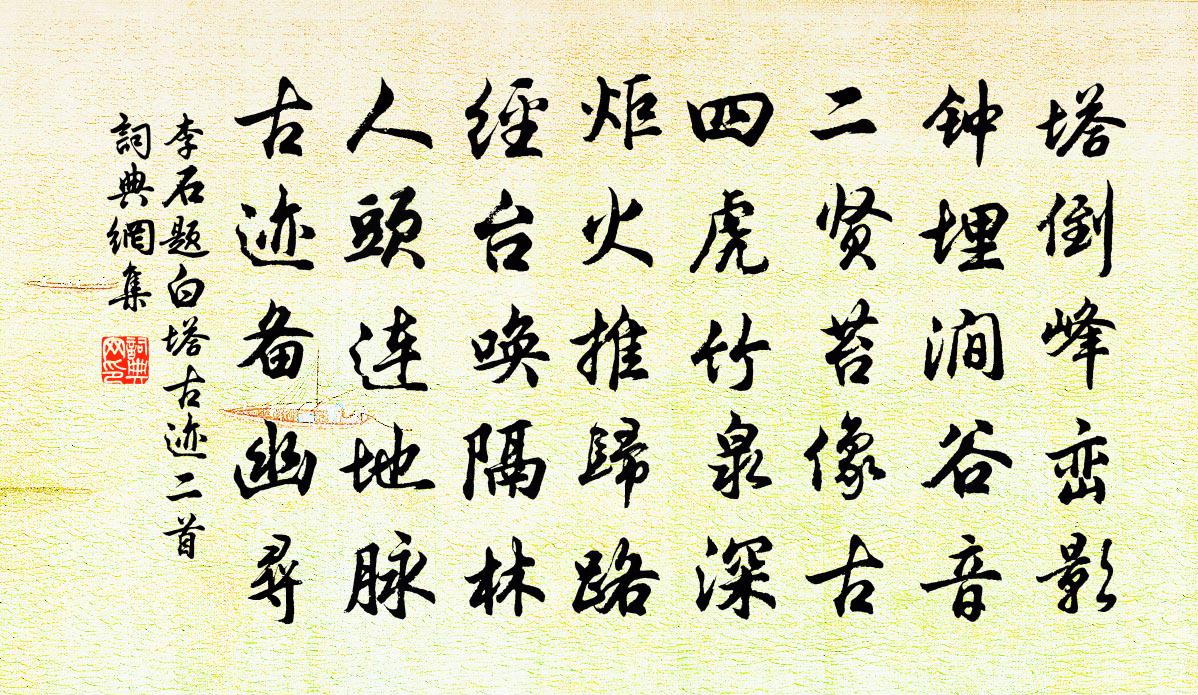 塔倒峰峦影
钟埋涧谷音
二贤苔像古
四虎竹泉深
炬火推歸路
經台唤隔林
人頭连地脉
古迹备幽尋
李石题白塔古迹二首
詞典網集
詞典网印